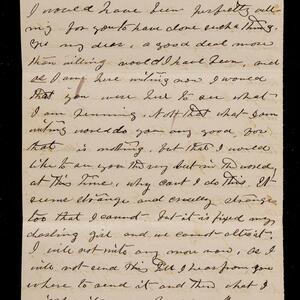 I would have been perfectly will
ing for you to have done such a thing.
Yes my dear, a good deal more
than willing would I have been, and
as I am here writing now I would
that you were here to see what
I am penning. Not that what I am
writing would do you any good, for
that is nothing. but that I would
like to see you the very but in the world
at this time, why cant I do this. It
seems strange and cruelly strange
too that I cannot. but it is fixed my
darling girl and we cannot alter it.
I will not write any more now, as I
will not send this till I hear from you
where to send it and then what I